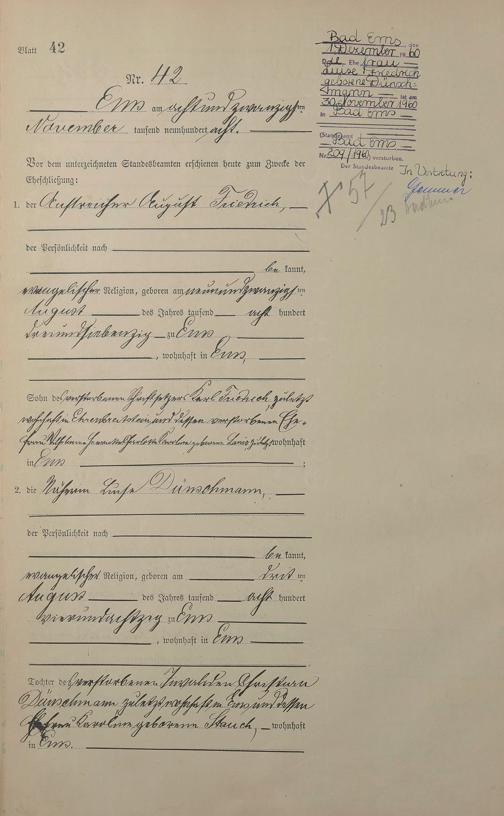 Blatt 42
Nr. 42
Ems am achtundzwanzigsten
November tausend neunhundert acht.
Vor dem unterzeichneten Standesbeamten erschienen heute zum Zwecke der
Eheschließung:
1. der Anstreicher August Friedrich,
der Persönlichkeit nach
be kannt,
evangelischer Religion, geboren am neunundzwanzigsten
August des Jahres tausend acht hundert
dreiundsiebenzig zu Ems
, wohnhaft in Ems,
Sohn des verstorbenen Schriftsetzers Karl Friedrich, zuletzt
wohnhaft in Ehrenbreitstein und dessen verstorbenen Ehe-
frau Karoline geborene zuletzt wohnhaft
in Ems ;
2. die Näherin Luise Dünschmann,
der Persönlichkeit nach
be kannt,
evangelischer Religion, geboren am dritten
August des Jahres tausend acht hundert
vierundachtzig zu Ems
, wohnhaft in Ems
Tochter des verstorbenen Invaliden Christian
Dünschmann zuletzt wohnhaft in Ems und dessen
Ehefrau Karoline geborene Stauch, wohnhaft
in Ems.
Bad Ems, den
1. Dezember 1960
Ehefrau
Luise Friedrich
geborene Dünsch-
mann ist am
30. November 1960
in Bad Ems
(Standesamt
Bad Ems
Nr. /1960) verstorben.
Der Standesbeamte
In Vertretung:
57
23